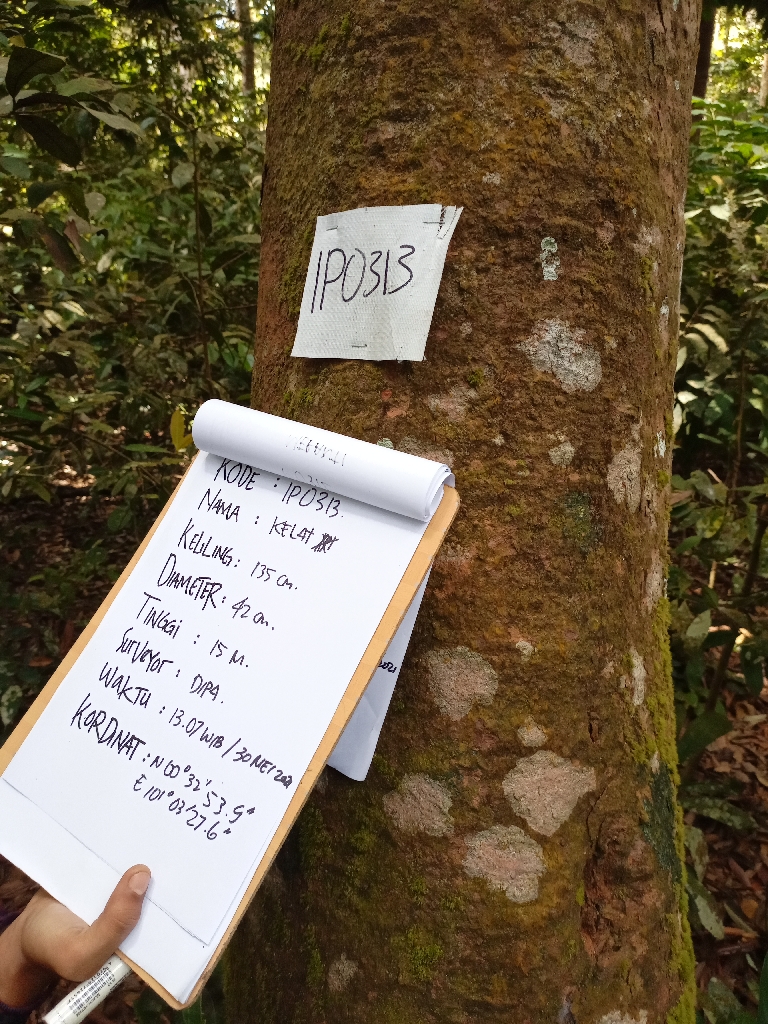 IPO313
KODE : IPO313.
NAMA : KELAT
KELILING : 135 cm.
DIAMETER : 42 cm.
TINGGI : 15 M.
SURVEYOR : DIPA.
WAKTU : 13.07 WIB / 30 MEI 2021
KORDINAT : N 00° 32' 53.9"
E 101° 03' 27.6"